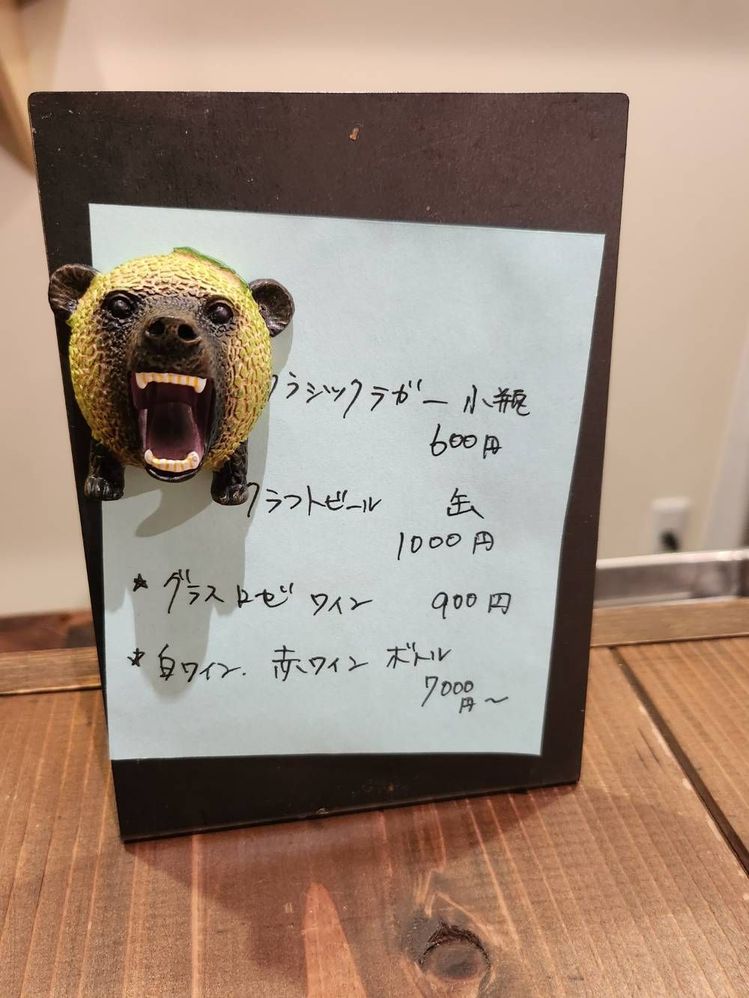 クラシックラガー 小瓶
600円
クラフトビール 缶
1000円
* グラスロゼワイン 900円
* 白ワイン. 赤ワイン ボトル
7000円〜